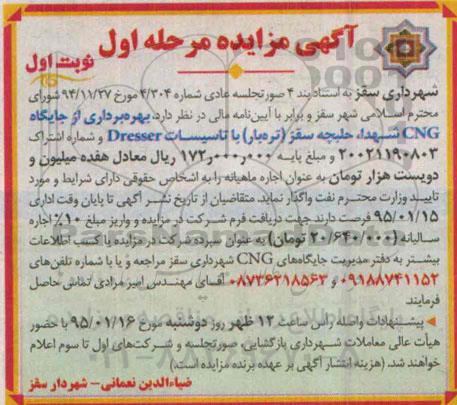 آگهی مزایده مرحله اول
نوبت اول
شهرداری سقز به استناد بند ۴ صورتجلسه عادی شماره ۴/۳۰۴ مورخ ۹۴/۱۱/۲۷ شورای
محترم اسلامی شهر سقز و برابر با آیین‌نامه مالی در نظر دارد، بهره‌برداری از جایگاه
CNG شهداء حلبچه سقز (تره‌بار) با تاسیسات Dresser و شماره اشتراک
۲۰۰۲۱۱۹۰۸۰۳ و مبلغ پایه ۱۷۲٫۰۰۰٫۰۰۰ ریال معادل هفده میلیون و
دویست هزار تومان به عنوان اجاره ماهیانه را به اشخاص حقوقی دارای شرایط و مورد
تایید وزارت محترم نفت واگذار نماید. متقاضیان از تاریخ نشر آگهی تا پایان وقت اداری
۹۵/۰۱/۱۵ فرصت دارند جهت دریافت فرم شرکت در مزایده و واریز مبلغ ۱۰٪ اجاره
سالیانه (۲۰/۶۴۰/۰۰۰ تومان) به عنوان سپرده شرکت در مزایده یا کسب اطلاعات
بیشتر به دفتر مدیریت جایگاه‌های CNG شهرداری سقز مراجعه و یا با شماره تلفن‌های
۰۹۱۸۸۷۴۱۱۵۲ و ۰۸۷۳۶۲۱۸۵۶۳ آقای مهندس امیر مرادی تماس حاصل
فرمایند.
◄ پیشنهادات واصله راس ساعت ۱۲ ظهر روز دوشنبه مورخ ۹۵/۰۱/۱۶ با حضور
هیأت عالی معاملات شهرداری بازگشایی، صورتجلسه و شرکت‌های اول تا سوم اعلام
خواهند شد. (هزینه انتشار آگهی بر عهده برنده مزایده است.)
ضیاءالدین نعمانی – شهردار سقز